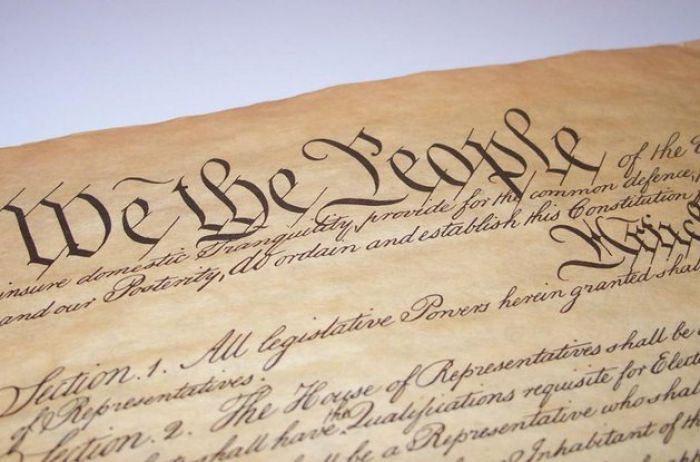 We the People of the
insure domestic Tranquility, provide for the common defence,
and our Posterity, do ordain and establish this Constitution
Section. 1. All legislative Powers herein granted shall
of Representatives.
Section. 2. The House of Representatives shall be
shall have the Qualifications requisite for Elect
shall be a Representative who shall
Inhabitant of the